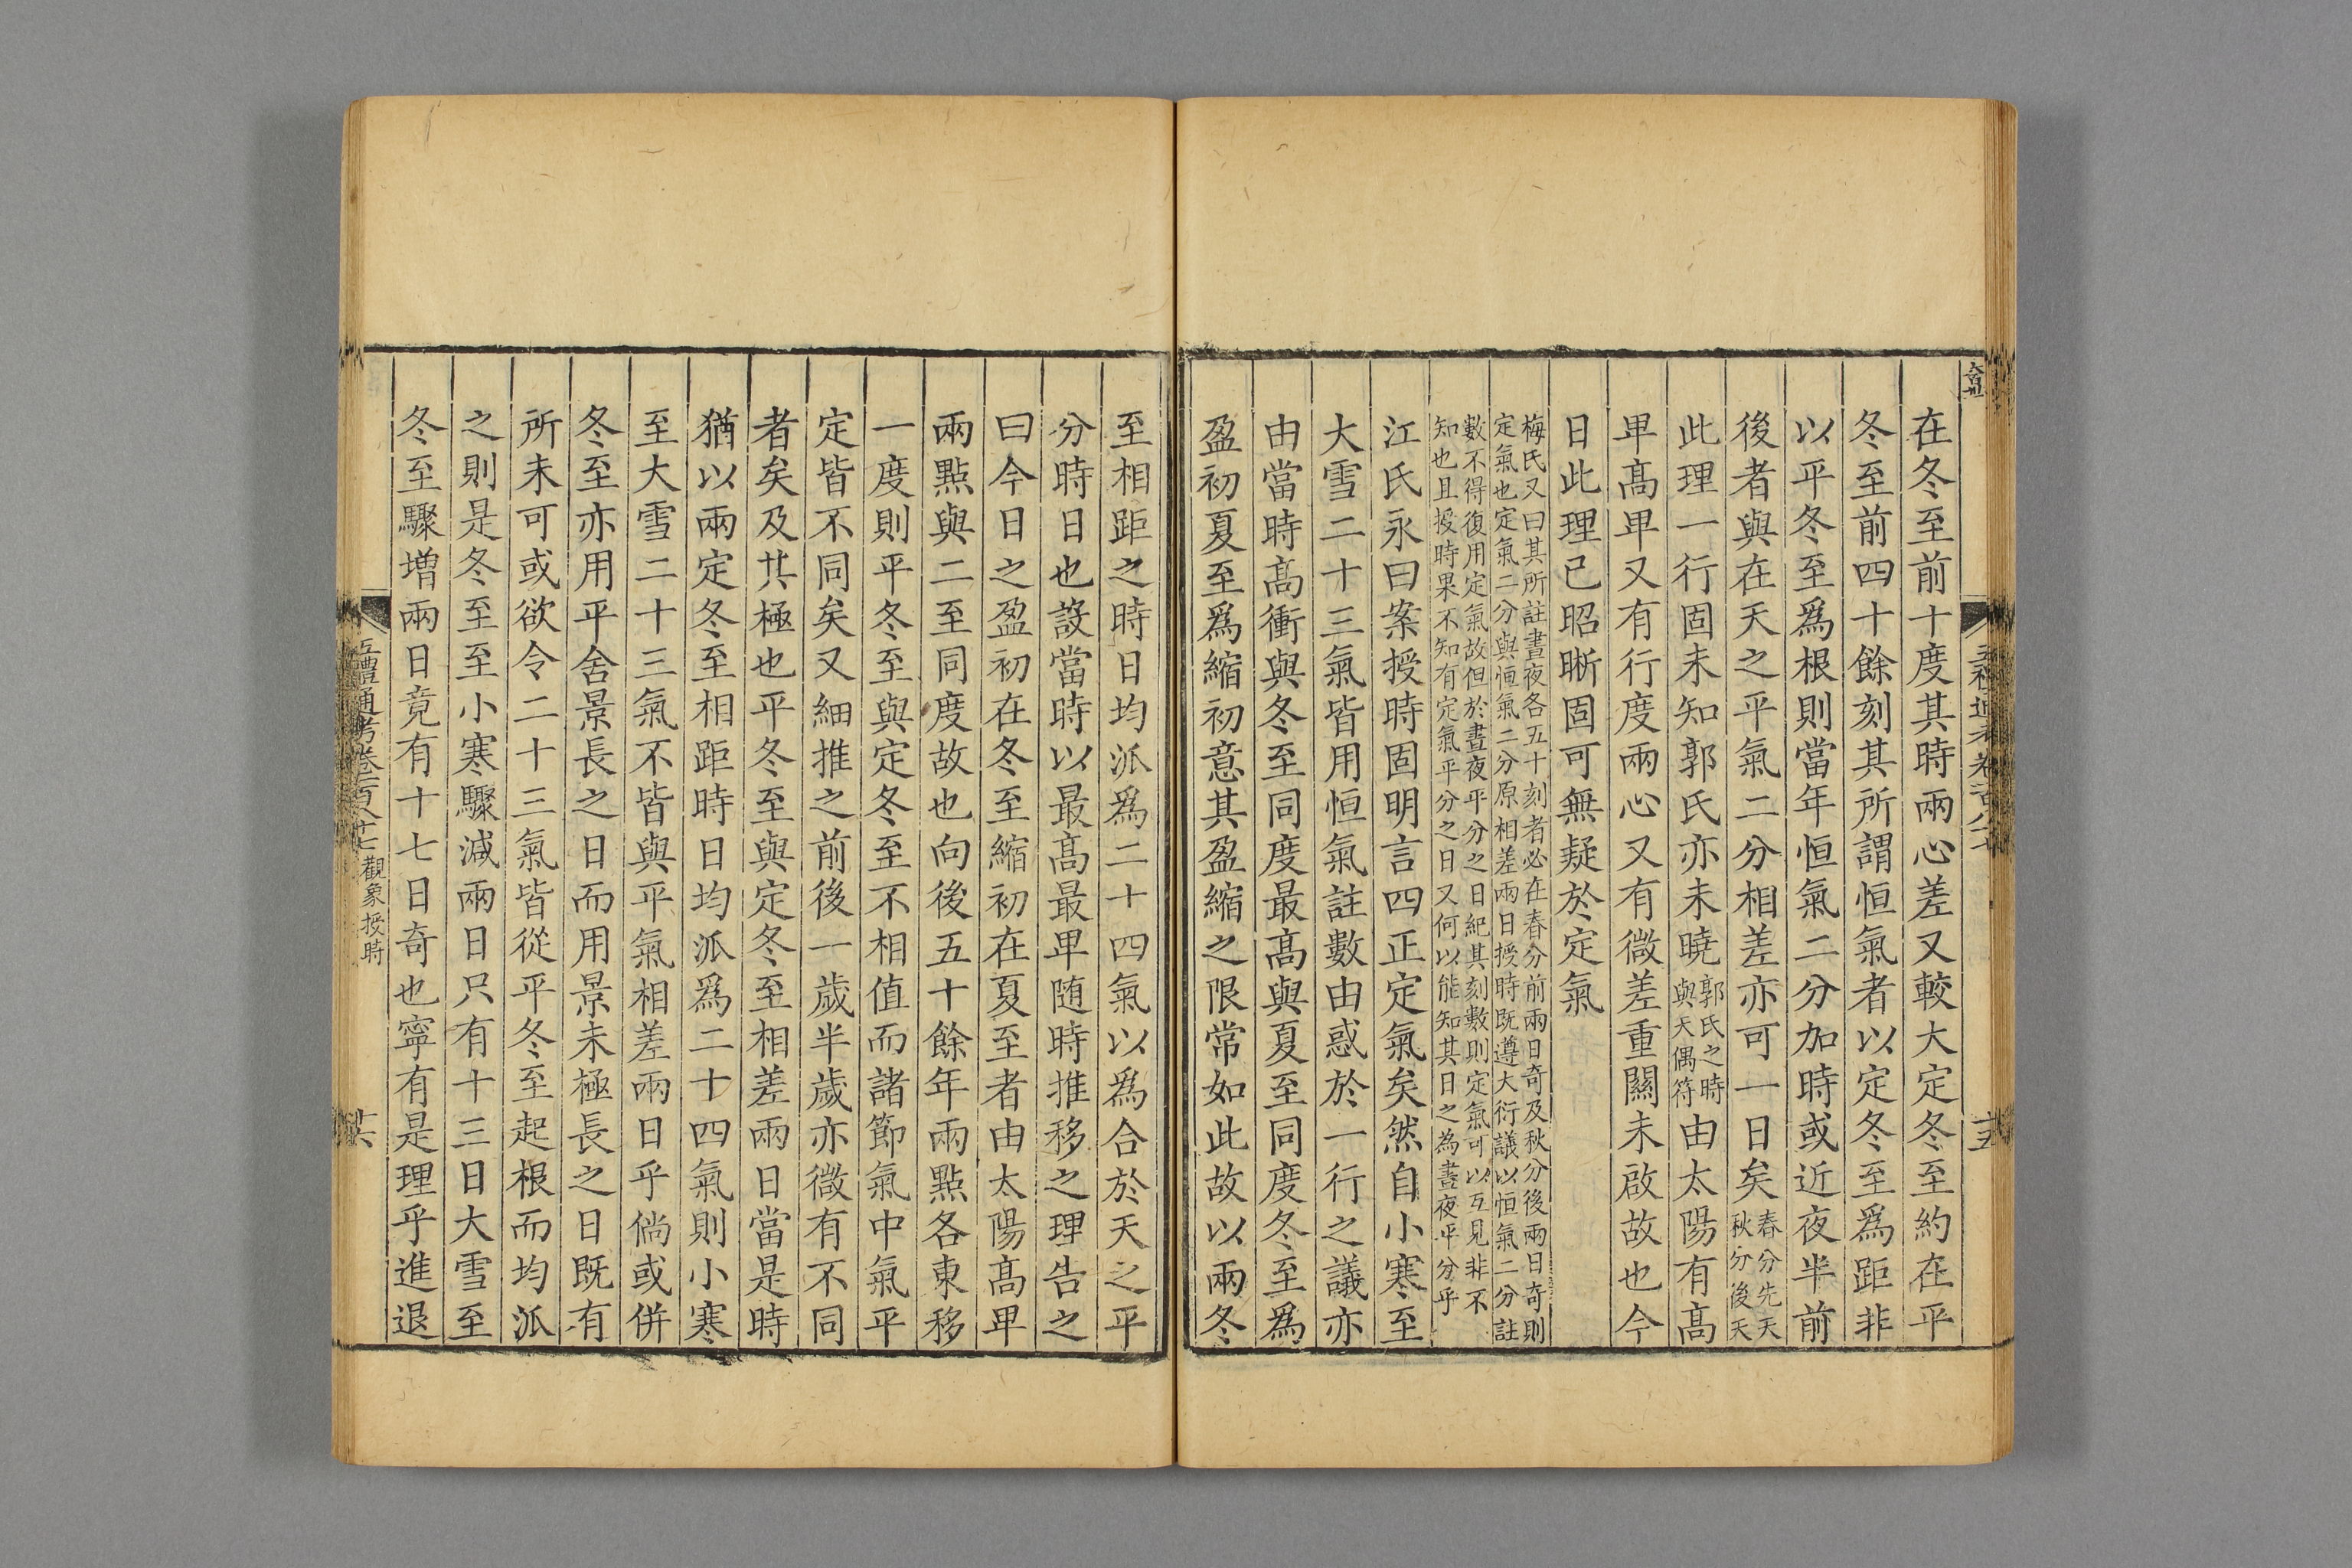 在冬至前十度其時兩心差又較大定冬至約在平
冬至前四十餘刻其所謂恒氣者以定冬至爲距非
以平冬至爲根則當年恒氣二分加時或近夜半前
後者與在天之平氣二分相差亦可一日矣春分先天秋分後天
此理一行固未知郭氏亦未曉郭氏之時與天偶符由太陽有高
卑高卑又有行度兩心又有微差重關未啟故也今
日此理已昭晰固可無疑於定氣
梅氏又曰其所註晝夜各五十刻者必在春分前兩日奇及秋分後兩日奇則
定氣也定氣二分與恒氣二分原相差兩日授時旣遵大衍議以恒氣二分註
數不得復用定氣故但於晝夜平分之日紀其刻數則定氣可以互見非不
知也且授時果不知有定氣平分之日又何以能知其日之為晝夜平分乎
江氏永曰案授時固明言四正定氣矣然自小寒至
大雪二十三氣皆用恒氣註數由惑於一行之議亦
由當時高衝與冬至同度最高與夏至同度冬至爲
盈初夏至爲縮初意其盈縮之限常如此故以兩冬
至相距之時日均派爲二十四氣以爲合於天之平
分時日也設當時以最高最卑随時推移之理告之
曰今日之盈初在冬至縮初在夏至者由太陽高卑
兩點與二至同度故也向後五十餘年兩點各東移
一度則平冬至與定冬至不相值而諸節氣中氣平
定皆不同矣又細推之前後一歲半歲亦微有不同
者矣及其極也平冬至與定冬至相差兩日當是時
猶以兩定冬至相距時日均派爲二十四氣則小寒
至大雪二十三氣不皆與平氣相差兩日乎倘或併
冬至亦用平舍景長之日而用景未極長之日既有
所未可或欲令二十三氣皆從平冬至起根而均派
之則是冬至至小寒驟減兩日只有十三日大雪至
冬至驟增兩日竟有十七日奇也寧有是理乎進退
五禮通考卷一百八十七 觀象授時